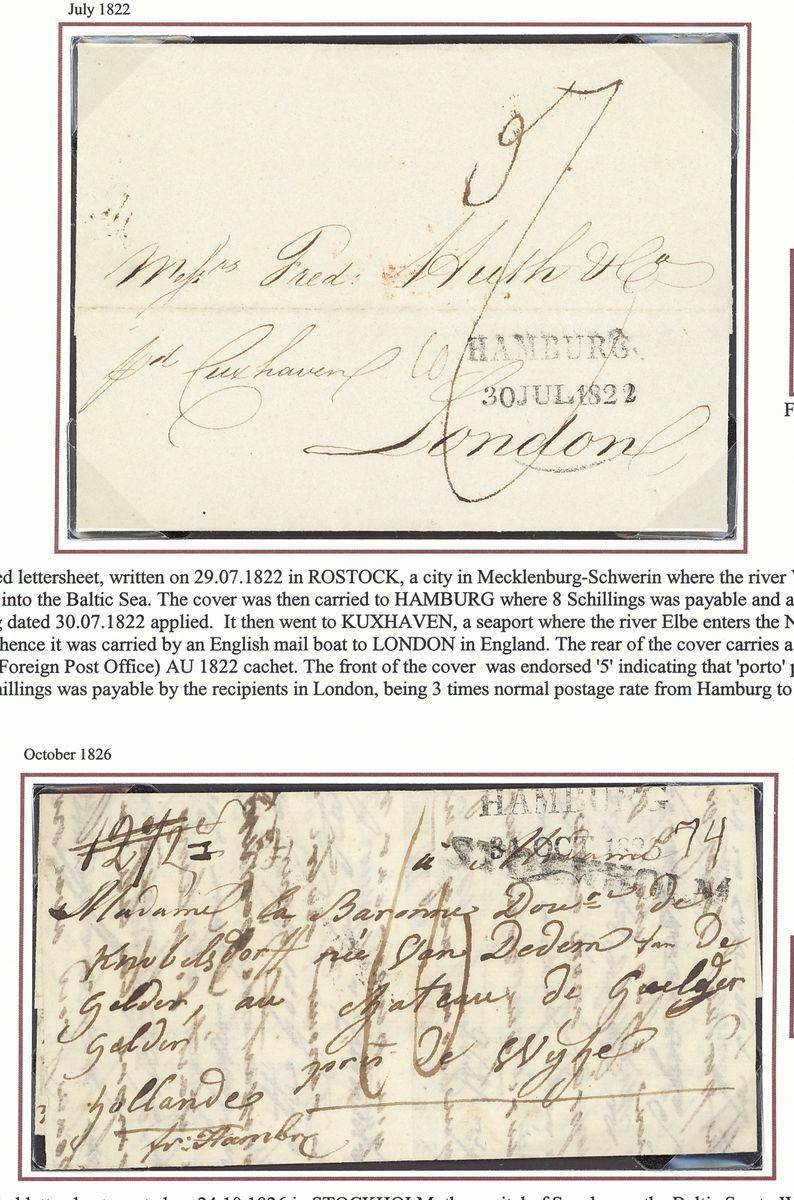 July 1822
Messrs Fred: Huth & Co
pd Cuxhaven
HAMBURG
30 JUL 1822
London
F
ed lettersheet, written on 29.07.1822 in ROSTOCK, a city in Mecklenburg-Schwerin where the river
into the Baltic Sea. The cover was then carried to HAMBURG where 8 Schillings was payable and a
g dated 30.07.1822 applied. It then went to KUXHAVEN, a seaport where the river Elbe enters the N
hence it was carried by an English mail boat to LONDON in England. The rear of the cover carries a
(Foreign Post Office) AU 1822 cachet. The front of the cover was endorsed '5' indicating that 'porto' p
hillings was payable by the recipients in London, being 3 times normal postage rate from Hamburg to
October 1826
HAMBURG
31 OCT 182
à Madame 74
STOCKHOLM
Madame la Baronne Dou.re de
Knobelsdorff née Van Dedem van De
Gelder, au chateau de Guelder
Gelder près de Wyhe
Hollande
fr: Hambr
24.10.1826 in STOCKHOLM, the capital of Sweden on the Baltic Sea to